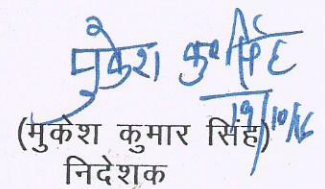 मुकेश कु० सिंह
19/10/16
(मुकेश कुमार सिंह)
निदेशक